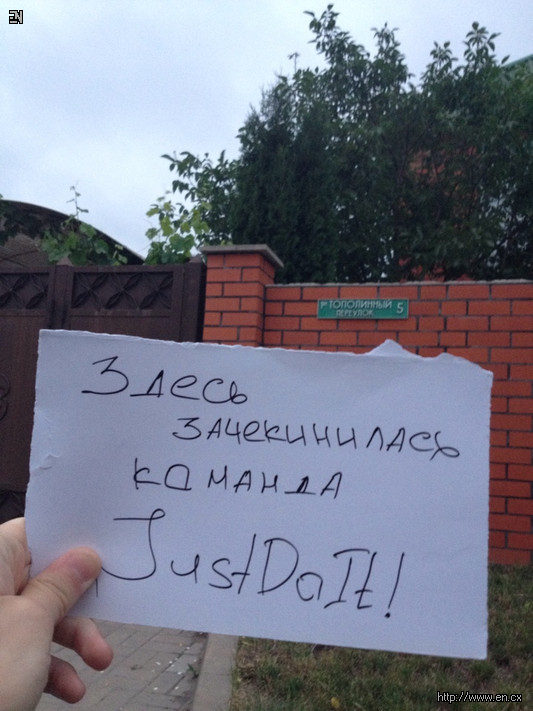 EN
1й ТОПОЛИННЫЙ
ПЕРЕУЛОК
5
Здесь
зачекинилась
команда
JustDoIt!
http://www.en.cx